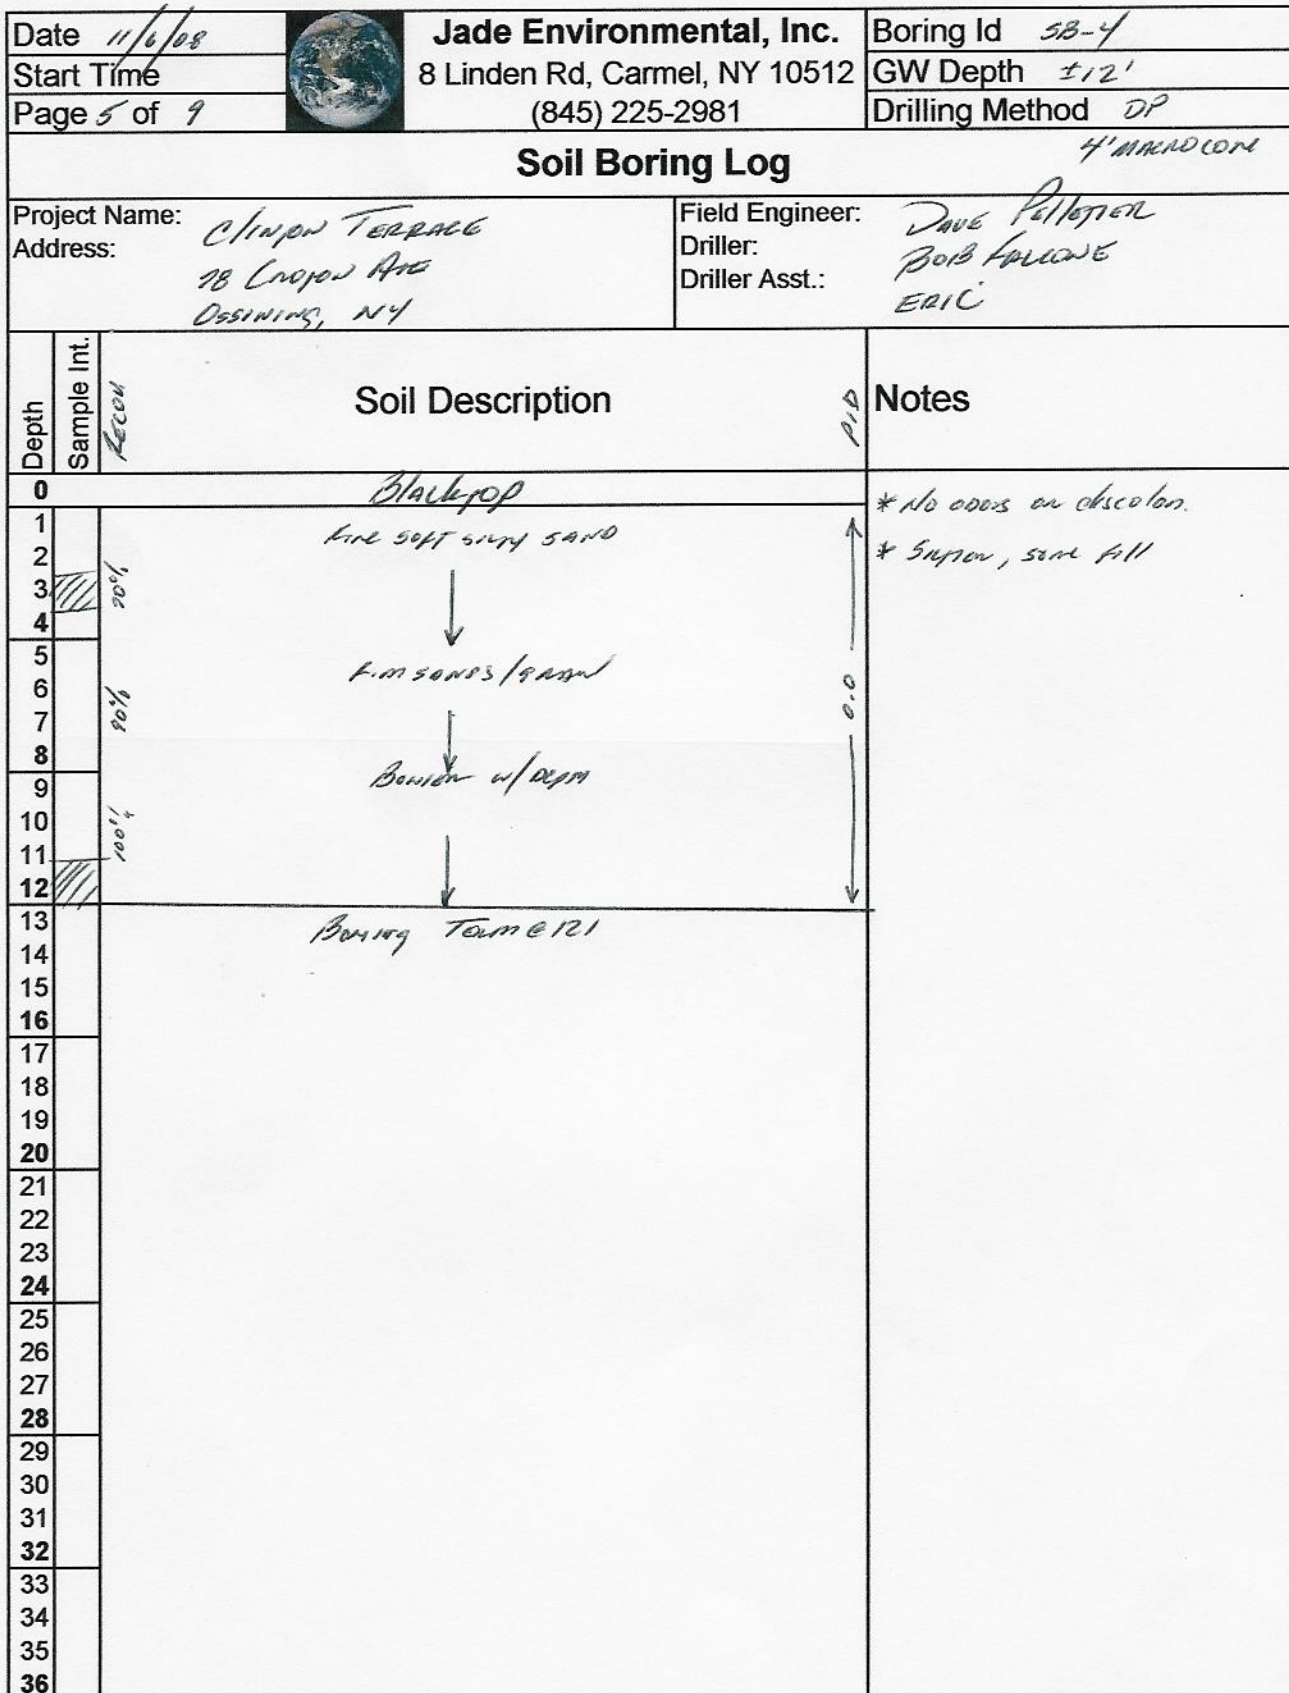 Date 11/6/08
Start Time
Page 5 of 9
Jade Environmental, Inc.
8 Linden Rd, Carmel, NY 10512
(845) 225-2981
Boring Id SB-4
GW Depth ±12'
Drilling Method DP
4' MACROCORE
Soil Boring Log
Project Name: Clinton Terrace
Address: 78 Croton Ave
Ossining, NY
Field Engineer: Dave Pelletier
Driller: Bob Falcone
Driller Asst.: Eric
Depth
Sample Int.
Recov
Soil Description
PID
Notes
0 Blacktop
* No odors or discolor.
1 Fine soft silty sand
2
* some fill
3
4
5 sands/gravel
6
90%
0.0
7
8
9 w/ depth
10
100%
11
12
13 Boring Term @ 12'
14
15
16
17
18
19
20
21
22
23
24
25
26
27
28
29
30
31
32
33
34
35
36